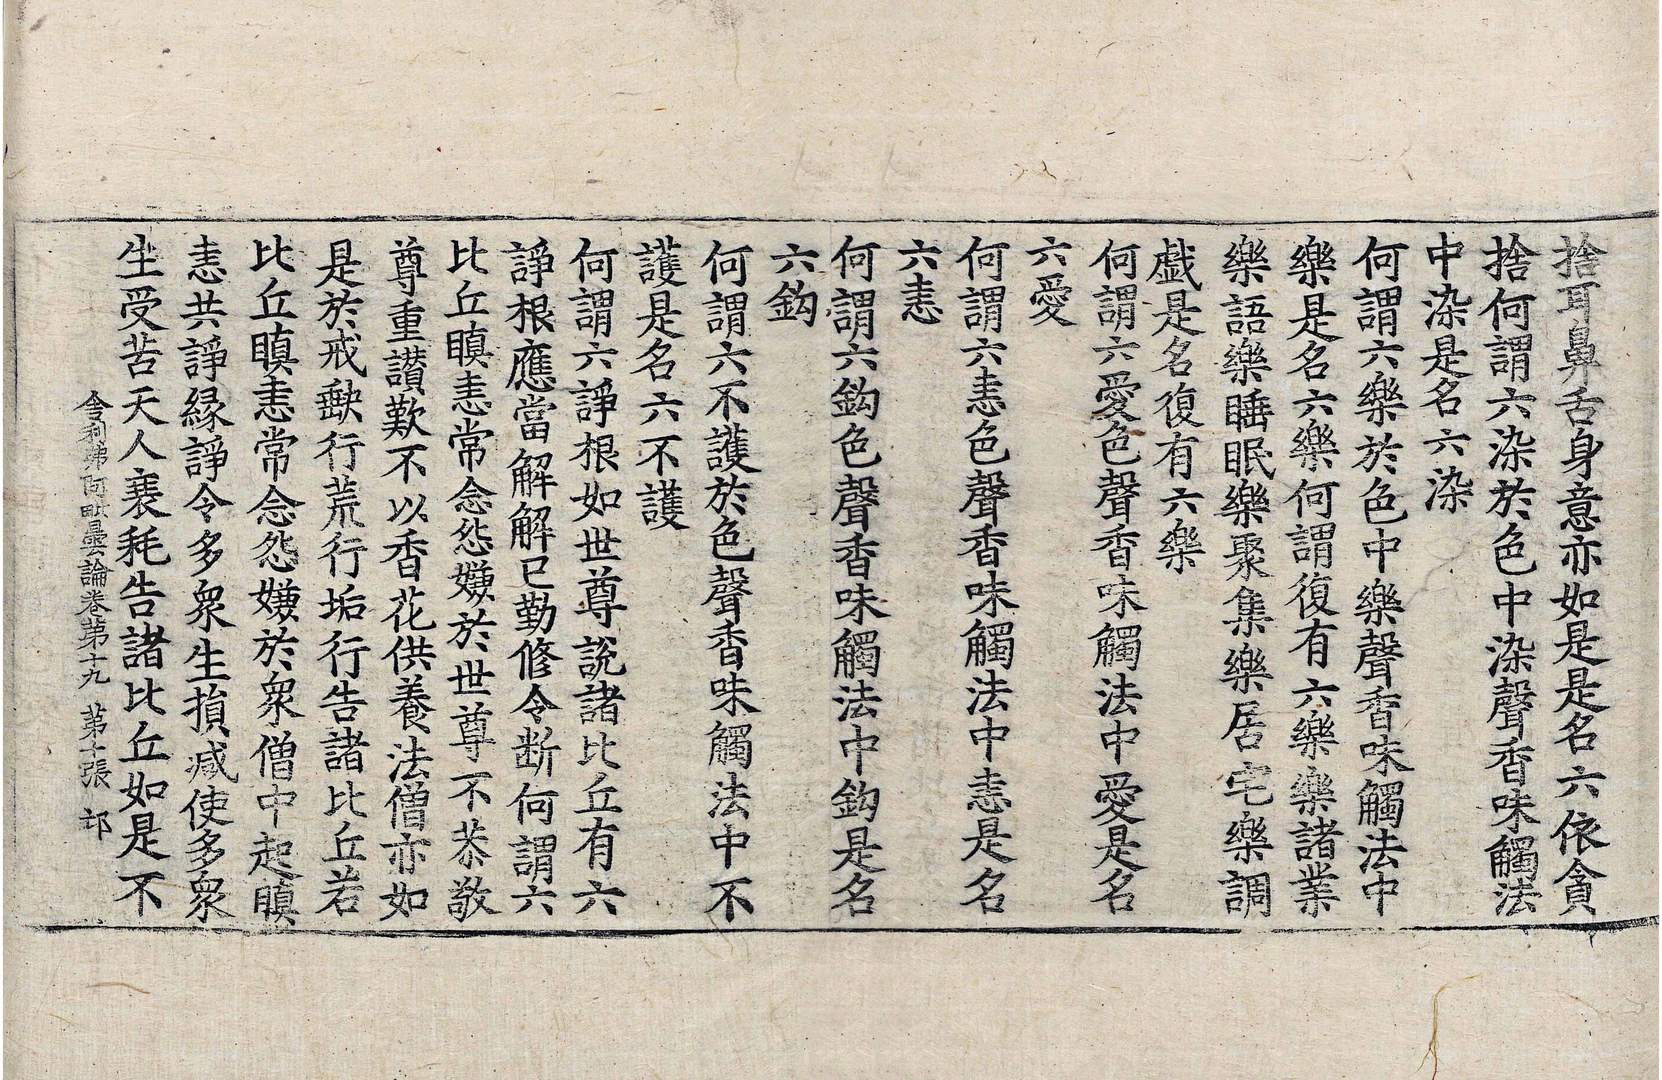 捨耳鼻舌身意亦如是是名六依貪
捨何謂六染於色中染聲香味觸法
中染是名六染
何謂六樂於色中樂聲香味觸法中
樂是名六樂何謂復有六樂樂諸業
樂語樂睡眠樂聚集樂居宅樂調
戱是名復有六樂
何謂六愛色聲香味觸法中愛是名
六愛
何謂六恚色聲香味觸法中恚是名
六恚
何謂六鈎色聲香味觸法中鈎是名
六鈎
何謂六不護於色聲香味觸法中不
護是名六不護
何謂六諍根如世尊說諸比丘有六
諍根應當解解已勤修令断何謂六
比丘瞋恚常念怨嫌於世尊不恭敬
尊重讃歎不以香花供養法僧亦如
是於戒缺行荒行垢行告諸比丘若
比丘瞋恚常念怨嫌於衆僧中起瞋
恚共諍緣諍令多衆生損減使多衆
生受苦天人衰耗告諸比丘如是不
舍利弗阿毗曇論卷第十九 第十張 邙